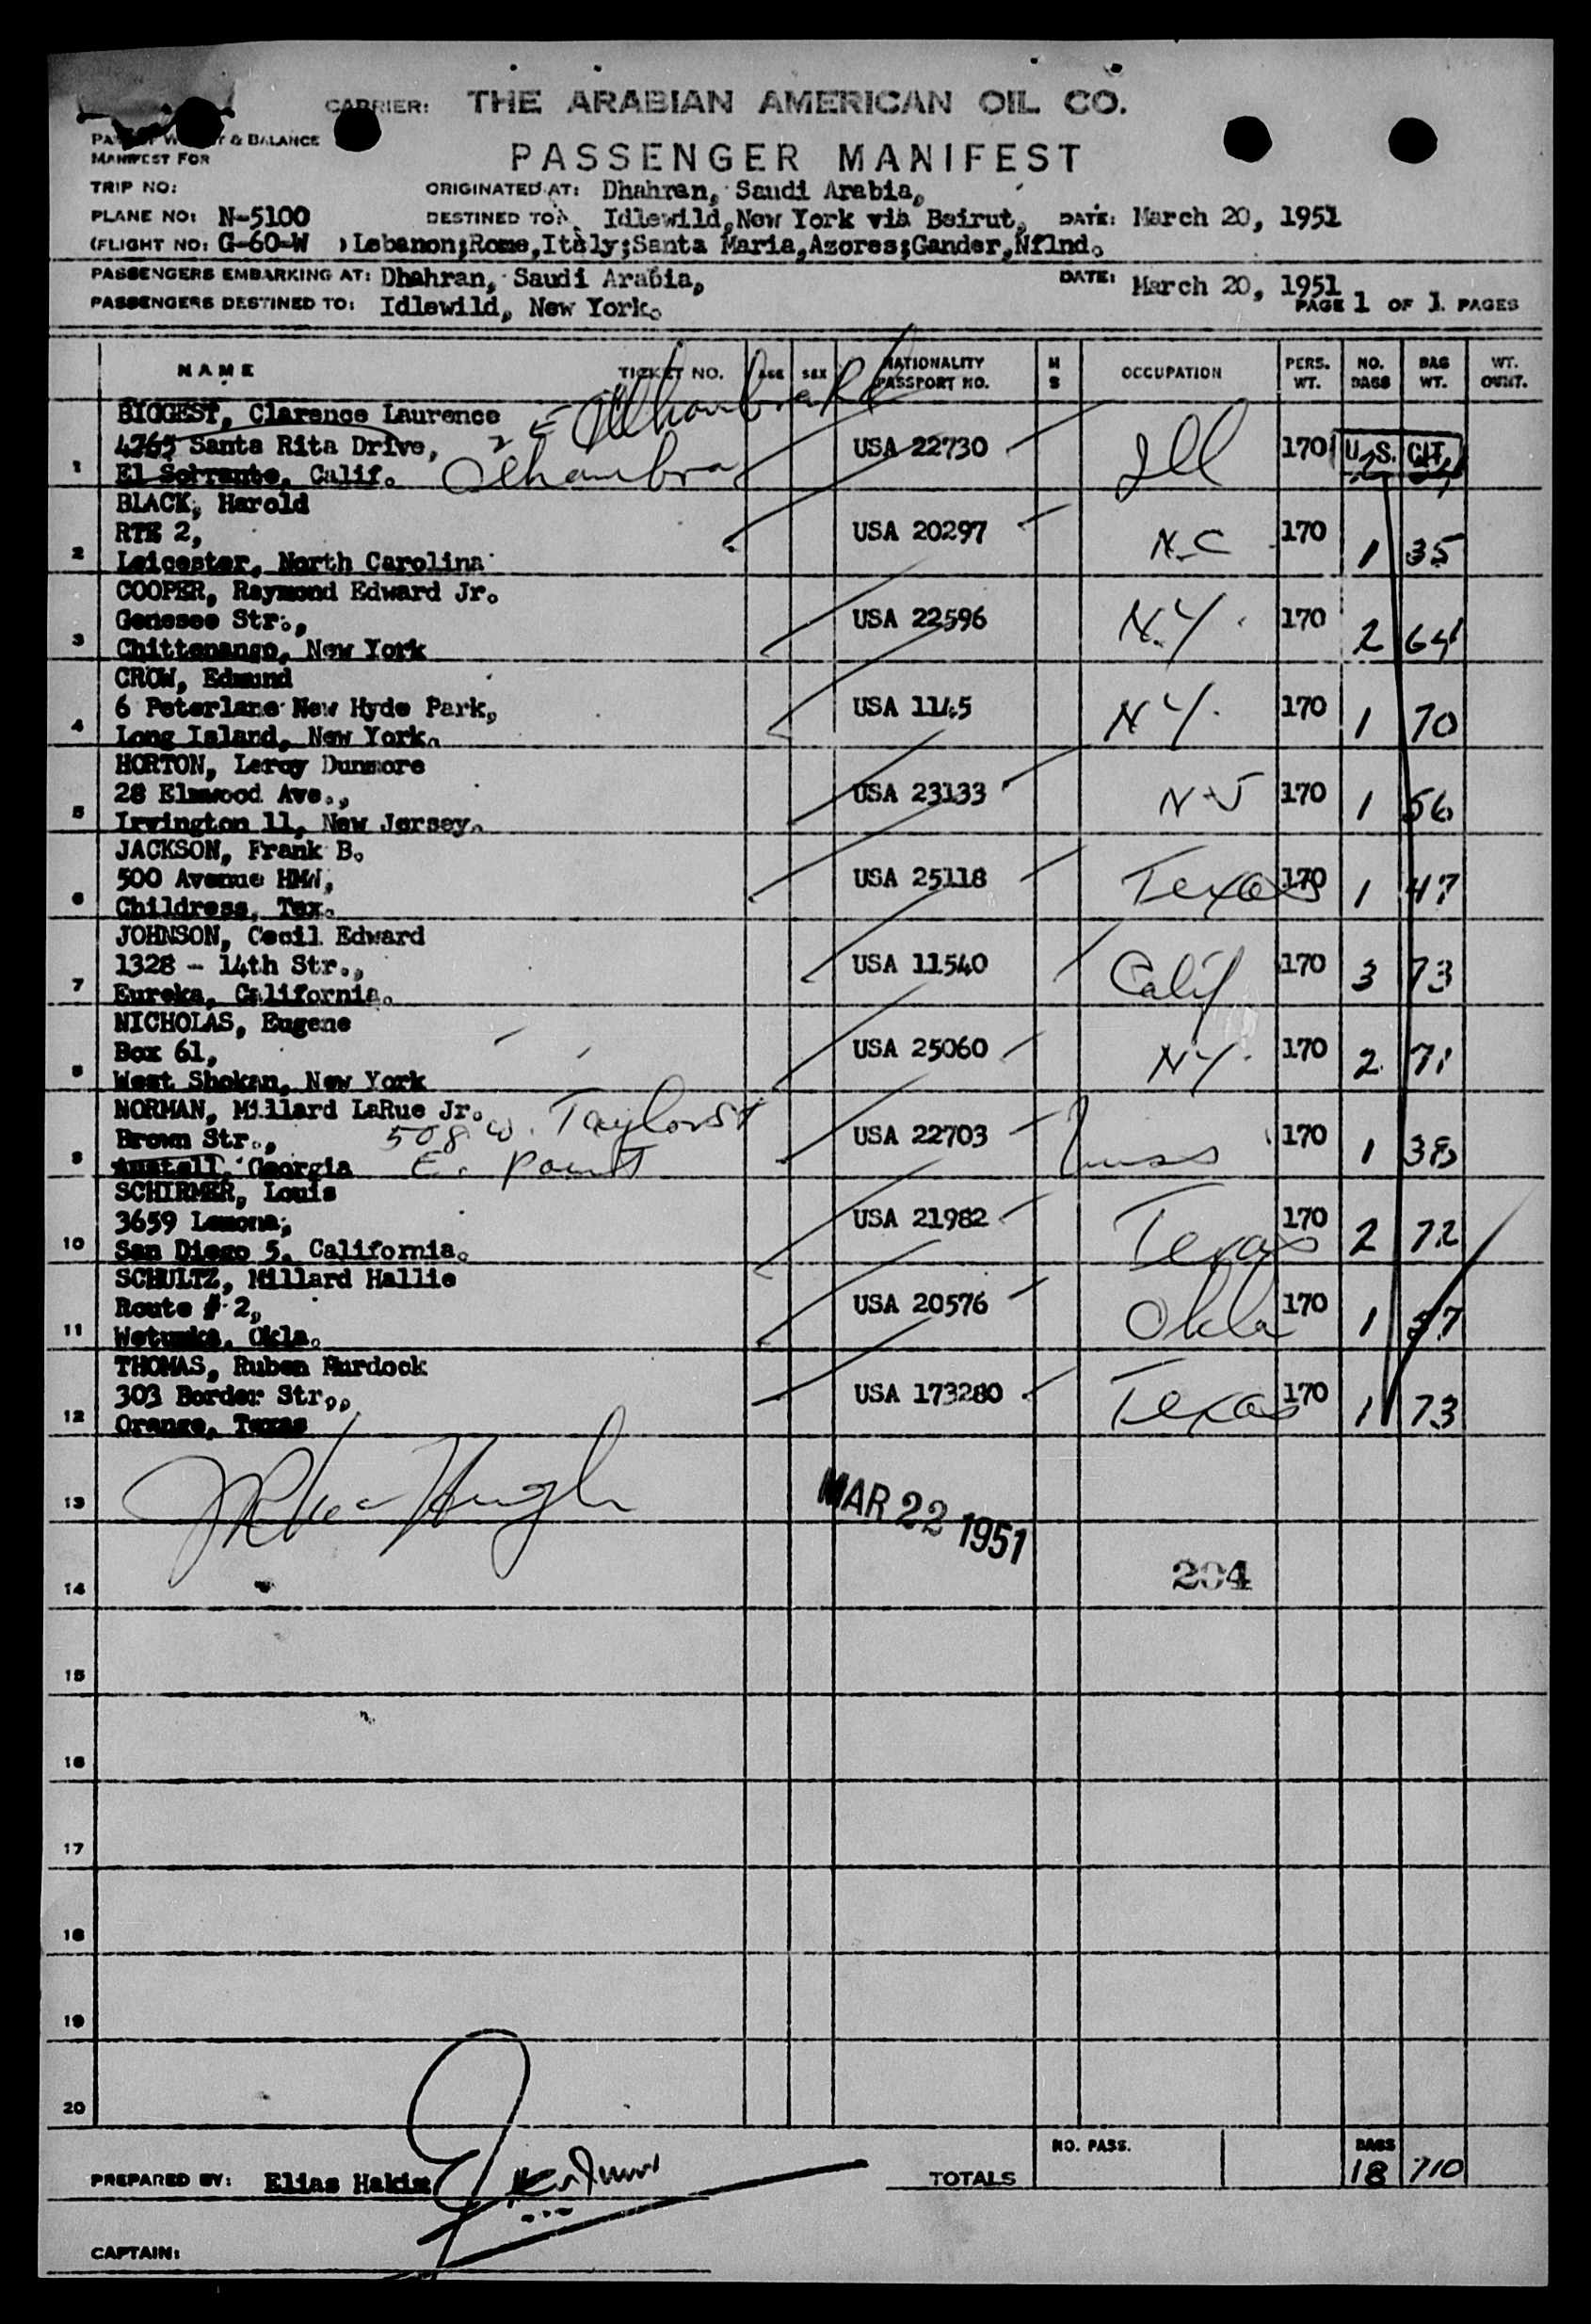 CARRIER: THE ARABIAN AMERICAN OIL CO.
& BALANCE
MANIFEST FOR
PASSENGER MANIFEST
TRIP NO:
ORIGINATED AT: Dhahran, Saudi Arabia,
PLANE NO: N-5100 DESTINED TO: Idlewild, New York via Beirut, DATE: March 20, 1951
(FLIGHT NO: G-60-W ) Lebanon;Rome,Italy;Santa Maria,Azores;Gander,Nflnd.
PASSENGERS EMBARKING AT: Dhahran, Saudi Arabia, DATE: March 20, 1951
PASSENGERS DESTINED TO: Idlewild, New York. PAGE 1 OF 1 PAGES
NAME TICKET NO. AGE SEX NATIONALITY PASSPORT NO. M S OCCUPATION PERS. WT. NO. BAGS BAG WT. WT. OUNT.
BIGGEST, Clarence Laurence
4265 Santa Rita Drive, USA 22730 Ill 170 U.S. CIT.
1 El Sorrante, Calif. Alhambra
BLACK, Harold
RTE 2, USA 20297 N-C 170 1 35
2 Leicester, North Carolina
COOPER, Raymond Edward Jr.
Genesee Str., USA 22596 N.Y. 170 2 64
3 Chittenango, New York
CROW, Edmund
6 Peterlane New Hyde Park, USA 1145 N.Y. 170 1 70
4 Long Island, New York.
HORTON, Leroy Dunmore
28 Elmwood Ave., USA 23133 N-J 170 1 56
5 Irvington 11, New Jersey.
JACKSON, Frank B.
500 Avenue HNW, USA 25118 Texas 170 1 47
6 Childress, Tex.
JOHNSON, Cecil Edward
1328 - 14th Str., USA 11540 Calif 170 3 73
7 Eureka, California.
NICHOLAS, Eugene
Box 61, USA 25060 NY. 170 2 71
8 West Shokan, New York
NORMAN, Millard LaRue Jr. 508 W. Taylor St
Brown Str., USA 22703 170 1 38
9 Austell, Georgia E. Point
SCHIRMER, Louis
3659 Lemona, USA 21982 Texas 170 2 72
10 San Diego 5, California.
SCHULTZ, Millard Hallie
Route # 2, USA 20576 Okla 170 1 57
11 Wetumka, Okla.
THOMAS, Ruben Murdock
303 Border Str., USA 173280 Texas 170 1 73
12 Orange, Texas
13
MAR 22 1951
14
204
15
16
17
18
19
20
NO. PASS. BAGS
PREPARED BY: Elias Hakim TOTALS 18 710
CAPTAIN: